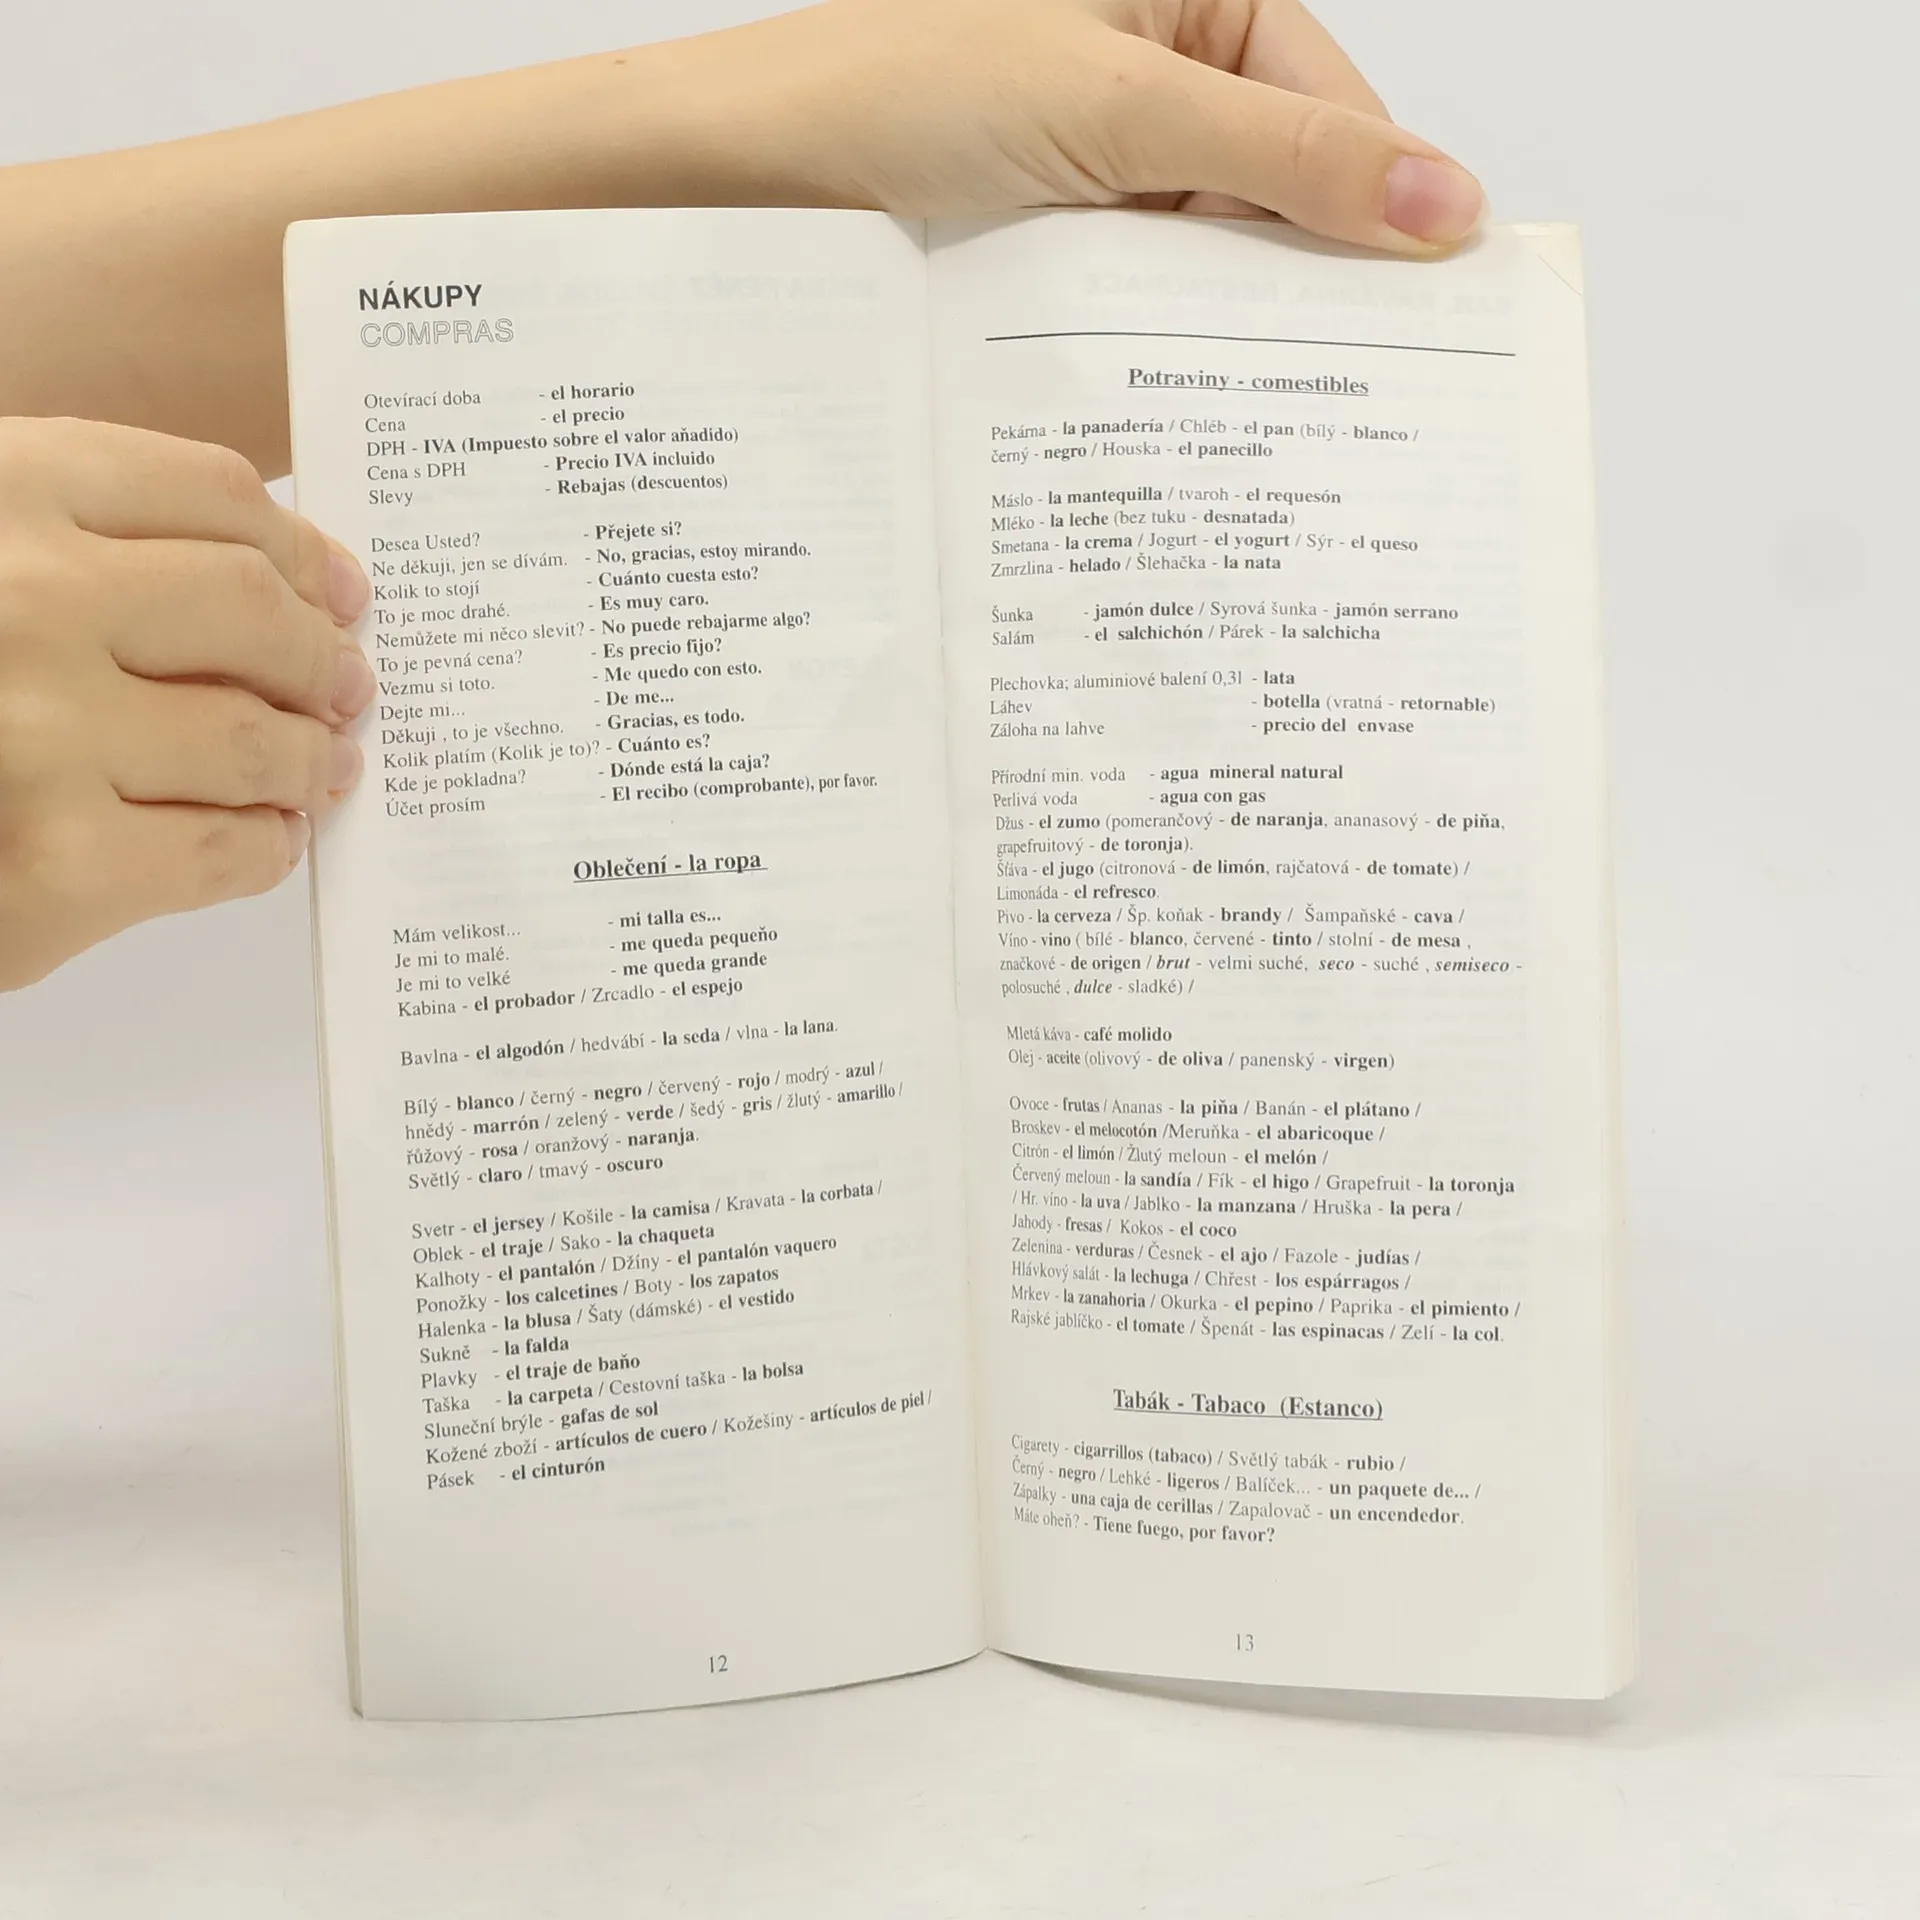 NÁKUPY
COMPRAS
Otevírací doba - el horario
Cena - el precio
DPH - IVA (Impuesto sobre el valor añadido)
Cena s DPH - Precio IVA incluido
Slevy - Rebajas (descuentos)
Desea Usted? - Přejete si?
Ne děkuji, jen se dívám. - No, gracias, estoy mirando.
Kolik to stojí - Cuánto cuesta esto?
To je moc drahé. - Es muy caro.
Nemůžete mi něco slevit? - No puede rebajarme algo?
To je pevná cena? - Es precio fijo?
Vezmu si toto. - Me quedo con esto.
Dejte mi... - De me...
Děkuji , to je všechno. - Gracias, es todo.
Kolik platím (Kolik je to)? - Cuánto es?
Kde je pokladna? - Dónde está la caja?
Účet prosím - El recibo (comprobante), por favor.
Oblečení - la ropa
Mám velikost... - mi talla es...
Je mi to malé. - me queda pequeño
Je mi to velké - me queda grande
Kabina - el probador / Zrcadlo - el espejo
Bavlna - el algodón / hedvábí - la seda / vlna - la lana.
Bílý - blanco / černý - negro / červený - rojo / modrý - azul /
hnědý - marrón / zelený - verde / šedý - gris / žlutý - amarillo /
řůžový - rosa / oranžový - naranja.
Světlý - claro / tmavý - oscuro
Svetr - el jersey / Košile - la camisa / Kravata - la corbata /
Oblek - el traje / Sako - la chaqueta
Kalhoty - el pantalón / Džíny - el pantalón vaquero
Ponožky - los calcetines / Boty - los zapatos
Halenka - la blusa / Šaty (dámské) - el vestido
Sukně - la falda
Plavky - el traje de baño
Taška - la carpeta / Cestovní taška - la bolsa
Sluneční brýle - gafas de sol
Kožené zboží - artículos de cuero / Kožešiny - artículos de piel /
Pásek - el cinturón
12
Potraviny - comestibles
Pekárna - la panadería / Chléb - el pan (bílý - blanco /
černý - negro / Houska - el panecillo
Máslo - la mantequilla / tvaroh - el requesón
Mléko - la leche (bez tuku - desnatada)
Smetana - la crema / Jogurt - el yogurt / Sýr - el queso
Zmrzlina - helado / Šlehačka - la nata
Šunka - jamón dulce / Syrová šunka - jamón serrano
Salám - el salchichón / Párek - la salchicha
Plechovka; aluminiové balení 0,3l - lata
Láhev - botella (vratná - retornable)
Záloha na lahve - precio del envase
Přírodní min. voda - agua mineral natural
Perlivá voda - agua con gas
Džus - el zumo (pomerančový - de naranja, ananasový - de piña,
grapefruitový - de toronja).
Šťáva - el jugo (citronová - de limón, rajčatová - de tomate) /
Limonáda - el refresco.
Pivo - la cerveza / Šp. koňak - brandy / Šampaňské - cava /
Víno - vino ( bílé - blanco, červené - tinto / stolní - de mesa ,
značkové - de origen / brut - velmi suché, seco - suché , semiseco -
polosuché , dulce - sladké) /
Mletá káva - café molido
Olej - aceite (olivový - de oliva / panenský - virgen)
Ovoce - frutas / Ananas - la piña / Banán - el plátano /
Broskev - el melocotón /Meruňka - el abaricoque /
Citrón - el limón / Žlutý meloun - el melón /
Červený meloun - la sandía / Fík - el higo / Grapefruit - la toronja
/ Hr. víno - la uva / Jablko - la manzana / Hruška - la pera /
Jahody - fresas / Kokos - el coco
Zelenina - verduras / Česnek - el ajo / Fazole - judías /
Hlávkový salát - la lechuga / Chřest - los espárragos /
Mrkev - la zanahoria / Okurka - el pepino / Paprika - el pimiento /
Rajské jablíčko - el tomate / Špenát - las espinacas / Zelí - la col.
Tabák - Tabaco (Estanco)
Cigarety - cigarrillos (tabaco) / Světlý tabák - rubio /
Černý - negro / Lehké - ligeros / Balíček... - un paquete de... /
Zápalky - una caja de cerillas / Zapalovač - un encendedor.
Máte oheň? - Tiene fuego, por favor?
13